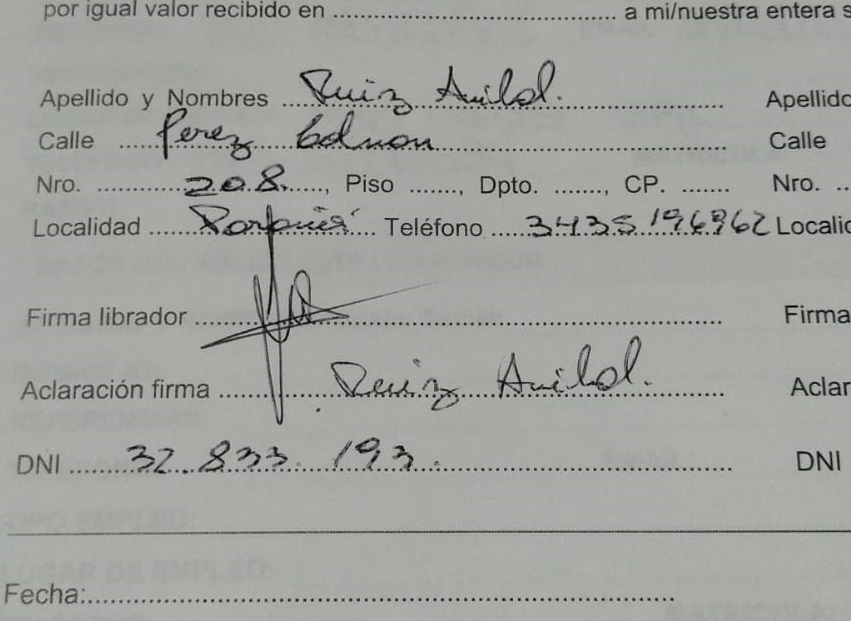 por igual valor recibido en ........................................ a mi/nuestra entera s
Apellido y Nombres ... Ruiz ........................ Apellido
Calle ..... Perez Colman ........................................ Calle
Nro. ............ 208. ......, Piso ......., Dpto. ......., CP. ....... Nro. ..
Localidad ........................ Teléfono ..... 3435 196962 Localid
Firma librador ........................................................................ Firma
Aclaración firma ............ Ruiz ........................ Aclar
DNI ....... 32.833.193. ........................................ DNI
Fecha:....................................................................................